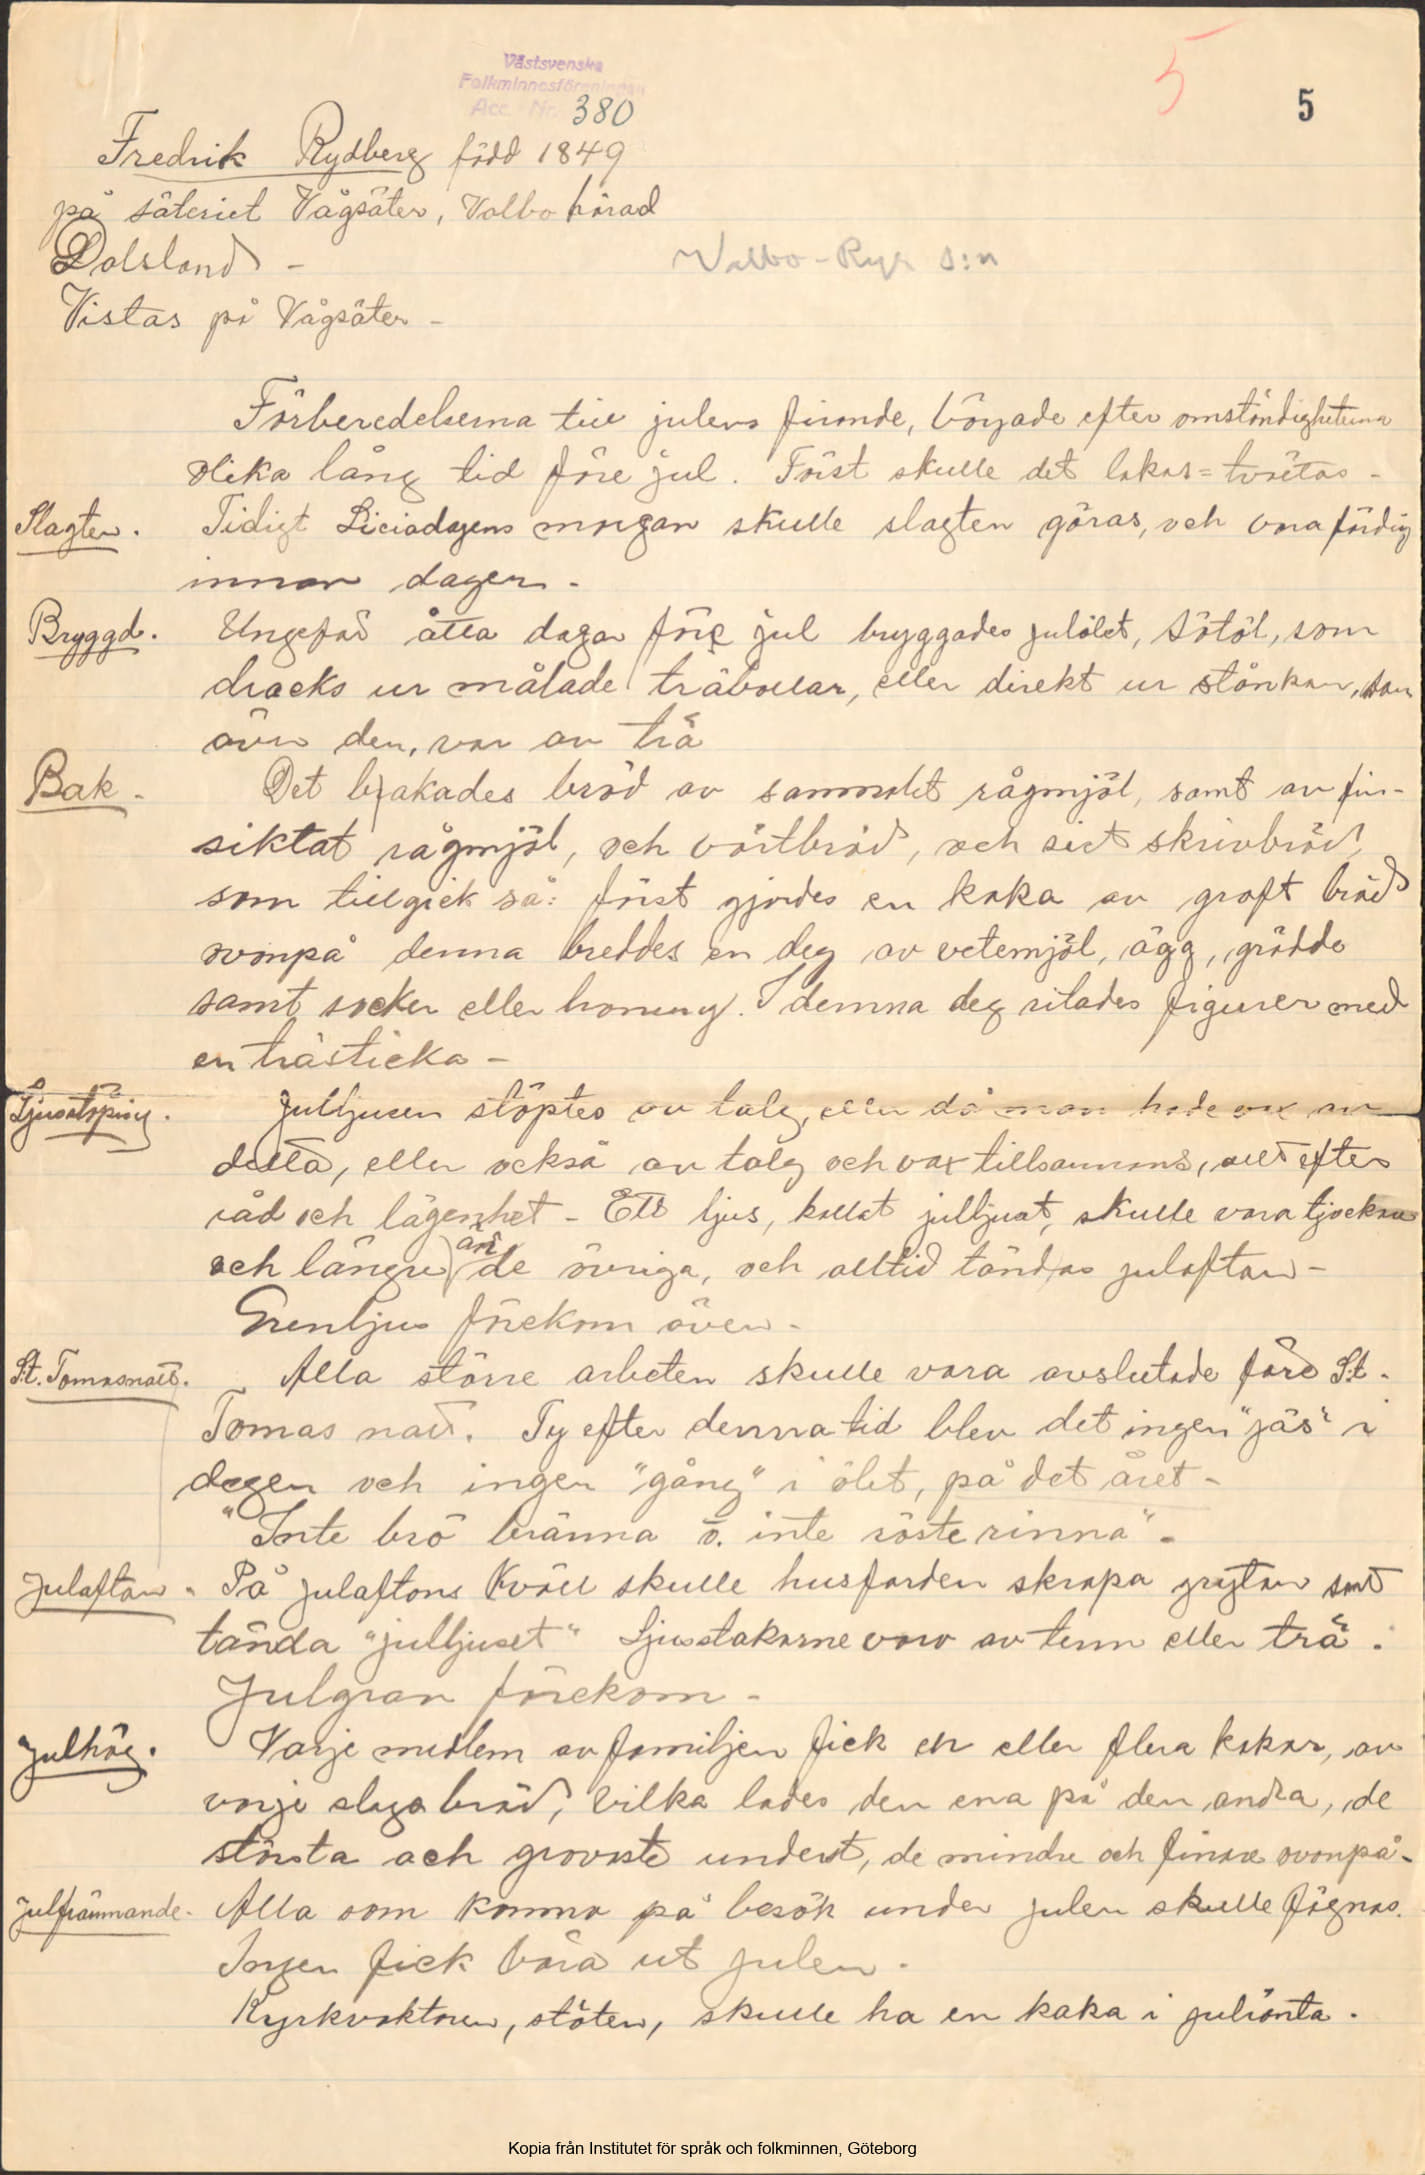 Västsvenska
Folkminnesföreningen
Acc. Nr. 380
5
5
Fredrik Rydberg född 1849
på säteriet Vågsäter, Valbo härad
Dalsland -
Valbo-Ryr s:n
Vistas på Vågsäter -
Förberedelserna till julens firande, började efter omständigheterna
olika lång tid före jul. Först skulle det lakas = tvättas -
Slagten. Tidigt Luciadagens morgon skulle slagten göras, och vara färdig
innan dagen -
Bryggd. Ungefär åtta dagar före jul bryggades julölet, sötöl, som
dracks ur målade träbollar, eller direkt ur stånkan, som
även den, var av trä
Bak - Det bakades bröd av sammalet rågmjöl, samt av fin-
siktat rågmjöl, och vörtbröd, och sist skrivbröd,
som tillgick så: först gjordes en kaka av groft bröd
ovanpå denna breddes en deg av vetemjöl, ägg, grädde
samt socker eller honung. I denna deg ritades figurer med
en trästicka -
Ljusstöpning. Julljusen stöptes av talg, eller då man hade vax av
detta, eller också av talg och vax tillsammans, allt efter
råd och lägenhet - Ett ljus, kallat julljuset, skulle vara tjockare
och längre än de övriga, och alltid tändas julaftan -
Grenljus förekom även -
S:t. Tomasnatt. Alla större arbeten skulle vara avslutade före S:t.
Tomas natt. Ty efter denna tid blev det ingen "jäs" i
degen och ingen "gång" i ölet, på det året -
"Inte brö bränna o. inte röste rinna" -
Julaftan - På julaftons kväll skulle husfarden skrapa grytan samt
tända "julljuset" Ljusstakarne voro av tenn eller trä.
Julgran förekom -
Julhög. Varje medlem av familjen fick en eller flera kakor, av
varje slags bröd, vilka lades den ena på den andra, de
största och grovaste underst, de mindre och finare ovanpå -
Julfrämmande - Alla som komma på besök under julen skulle fägnas.
Ingen fick bära ut julen -
Kyrkvaktaren, stöten, skulle ha en kaka i julränta.
Kopia från Institutet för språk och folkminnen, Göteborg